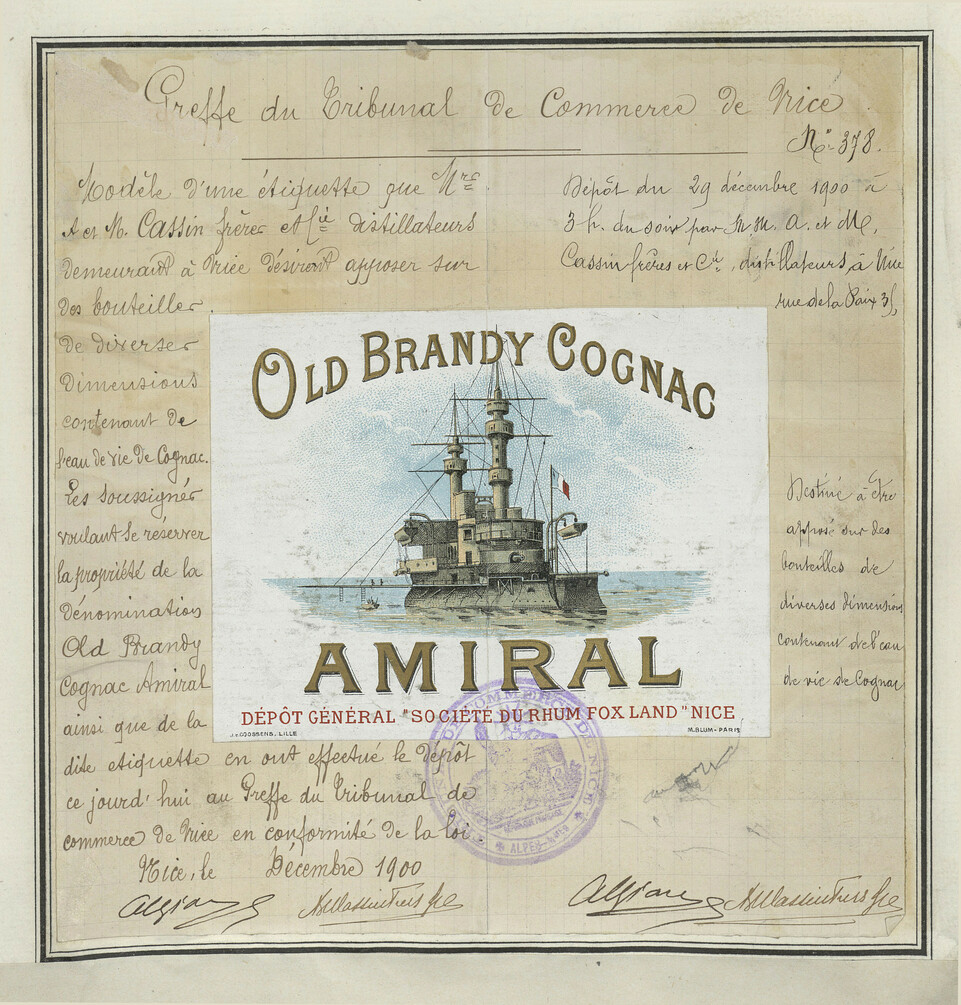 Greffe du Tribunal de Commerce de Nice
N° 378.
Modèle d'une étiquette que Mrs
A et M. Cassin frères et Cie distillateurs
demeurant à Nice désirent apposer sur
des bouteilles
de diverses
dimensions
contenant de
l'eau de vie de Cognac.
Les soussignés
voulant se réserver
la propriété de la
dénomination
Old Brandy
Cognac Amiral
ainsi que de la
dite etiquette en ont effectué le dépôt
ce jourd'hui au Greffe du Tribunal de
commerce de Nice en conformité de la loi.
Nice, le Décembre 1900
Dépôt du 29 décembre 1900 à
3 h. du soir par M M. A. et M.
Cassin frères et Cie, distillateurs, à Nice
rue de la Paix 3
Destiné à être
apposé sur des
bouteilles de
diverses dimensions
contenant de l'eau
de vie de Cognac
OLD BRANDY COGNAC
AMIRAL
DÉPÔT GÉNÉRAL "SOCIÉTÉ DU RHUM FOX LAND" NICE
J. GOOSSENS, LILLE
M. BLUM - PARIS
DE COMMERCE DE NICE
ALPES-